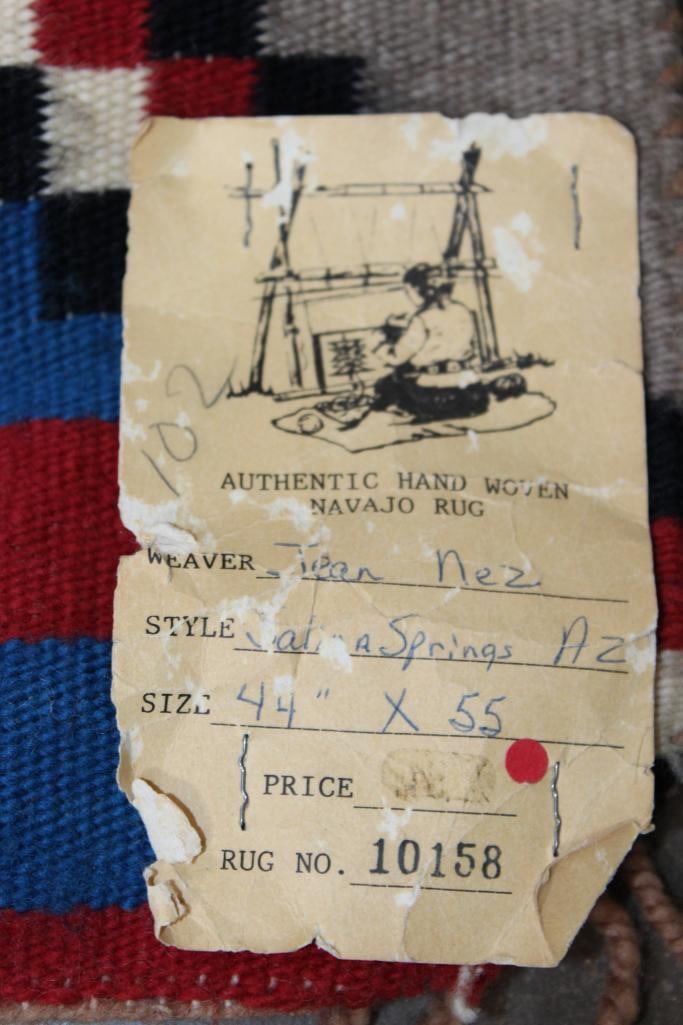 102
AUTHENTIC HAND WOVEN
NAVAJO RUG
WEAVER Jean Nez
STYLE Salina Springs Az
SIZE 44" X 55
PRICE
RUG NO. 10158